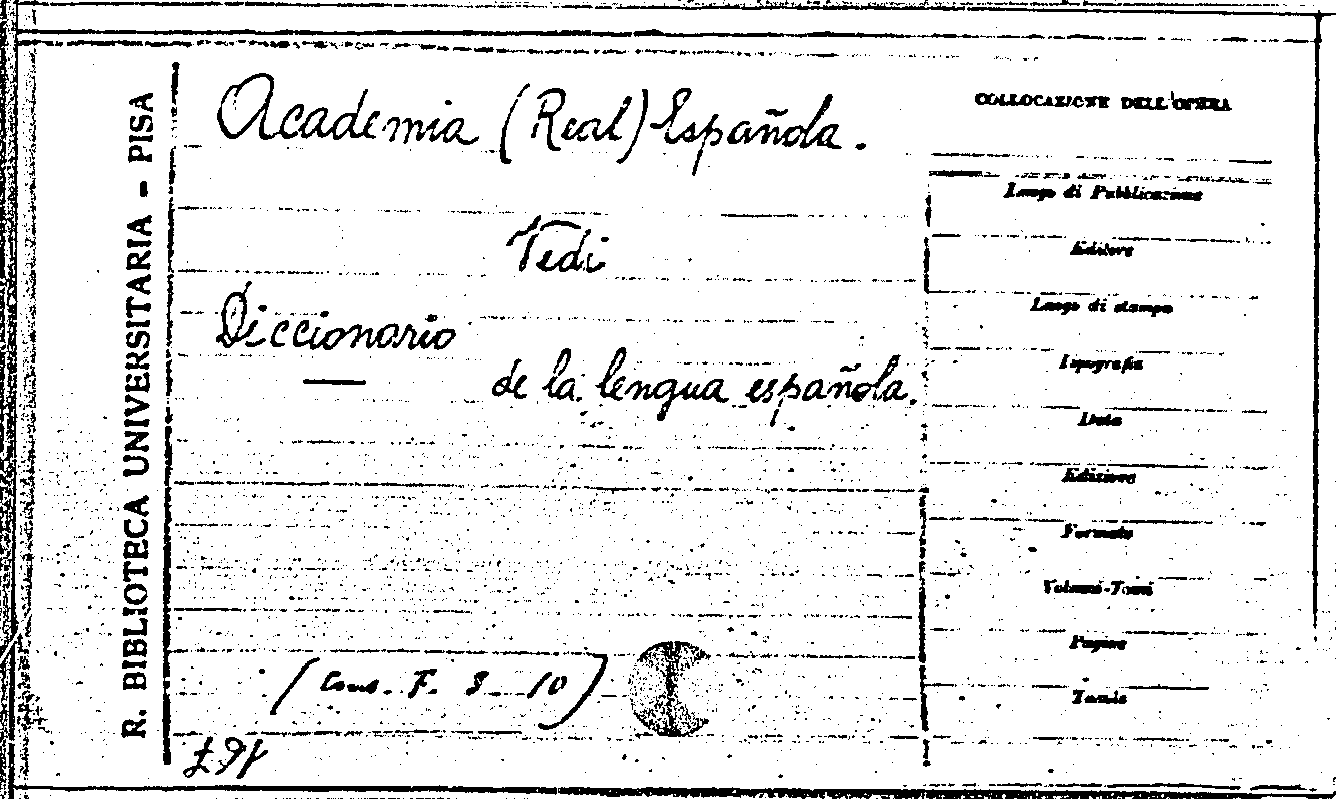 R. BIBLIOTECA UNIVERSITARIA - PISA
Academia (Real) Española.
Vedi
Diccionario
de la lengua española.
(Cons. F. 8 - 10)
COLLOCAZIONE DELL'OPERA
Luogo di Pubblicazione
Editore
Luogo di stampa
Tipografia
Data
Edizione
Formato
Volumi-Tomi
Pagine
Tavole